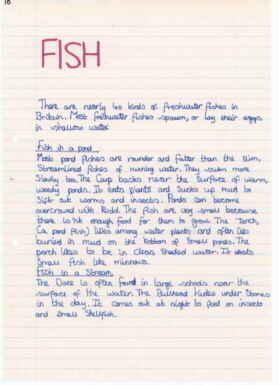 16
FISH
There are nearly 40 kinds of freshwater fishes in
Britain. Most freshwater fishes spawn, or lay their eggs
in shallow water
Fish in a pond
Most pond fishes are rounder and fatter than the slim,
Streamlined fishes of running water. They swim more
Slowly too. The Carp basks near the Surface of warm,
weedy ponds. It eats plants and Sucks up mud to
Sift out worms and insects. Ponds can become
overcrowed with Rudd. The fish are very small because
there isn't enough food for them to grow. The Tench,
(a pond fish) lives among water plants and often lies
buried in mud on the bottom of Small ponds. The
perch likes to be in Clear Shaded water. It eats
Small fish like minnows.
Fish in a Stream
The Dace is often found in large schools near the
surface of the water. The Bullhead Hides under Stones
in the day. It comes out at night to feed on insects
and Small Shellfish.